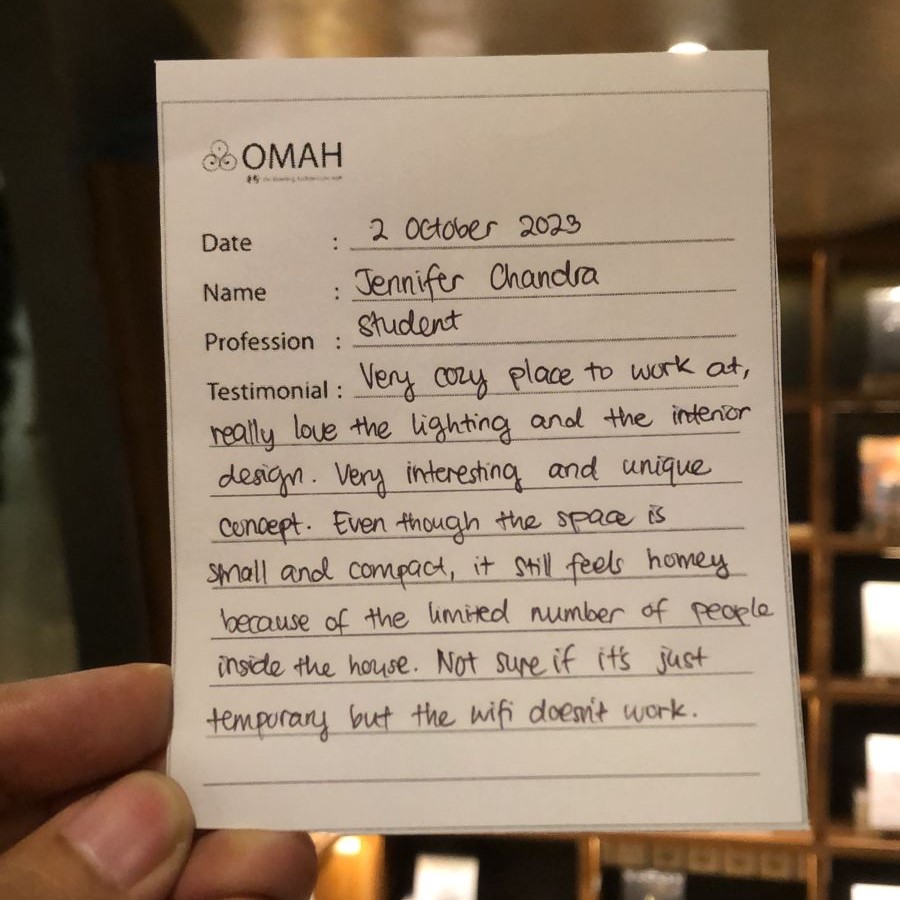 OMAH
Date : 2 October 2023
Name : Jennifer Chandra
Profession : Student
Testimonial : Very cozy place to work at,
really love the lighting and the interior
design. Very interesting and unique
concept. Even though the space is
small and compact, it still feels homey
because of the limited number of people
inside the house. Not sure if it's just
temporary but the wifi doesn't work.